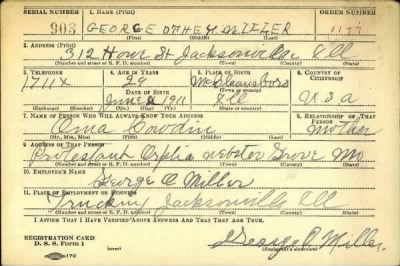 SERIAL NUMBER 1. NAME (Print) ORDER NUMBER
903 GEORGE OTHE MILLER
(First) (Middle) (Last)
2. ADDRESS (Print)
312 Howe St Jacksonville Ill
(Number and street or R. F. D. number) (Town) (County) (State)
3. TELEPHONE 4. AGE IN YEARS 5. PLACE OF BIRTH 6. COUNTRY OF CITIZENSHIP
1711X 29
DATE OF BIRTH
June 1911 Ill U.S.a
(Exchange) (Number) (Mo.) (Day) (Yr.) (State or country)
7. NAME OF PERSON WHO WILL ALWAYS KNOW YOUR ADDRESS 8. RELATIONSHIP OF THAT PERSON
mother
(Mr., Mrs., Miss) (First) (Middle) (Last)
9. ADDRESS OF THAT PERSON
Protestant Webster Grove Mo
(Number and street or R. F. D. number) (Town) (County) (State)
10. EMPLOYER'S NAME
George O Miller
11. PLACE OF EMPLOYMENT OR BUSINESS
Trucking Jacksonville Ill
(Number and street or R. F. D. number) (Town) (County) (State)
I AFFIRM THAT I HAVE VERIFIED ABOVE ANSWERS AND THAT THEY ARE TRUE.
REGISTRATION CARD
D. S. S. Form 1 George O Miller
(Registrant's signature)